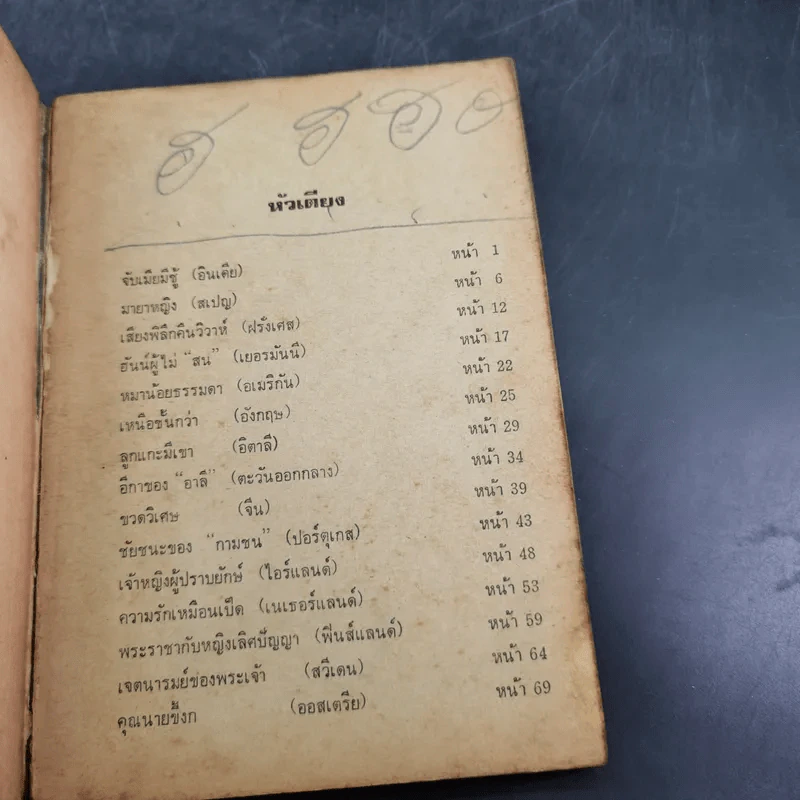 ฮ ฮ ฮ
หัวเตียง
จับเมียมีชู้ (อินเดีย) หน้า 1
มายาหญิง (สเปญ) หน้า 6
เสียงพิลึกคืนวิวาห์ (ฝรั่งเศส) หน้า 12
ฮันน์ผู้ไม่ “สน” (เยอรมันนี) หน้า 17
หมาน้อยธรรมดา (อเมริกัน) หน้า 22
เหนือชั้นกว่า (อังกฤษ) หน้า 25
ลูกแกะมีเขา (อิตาลี) หน้า 29
อีกาของ “อาลี” (ตะวันออกกลาง) หน้า 34
ขวดวิเศษ (จีน) หน้า 39
ชัยชนะของ “กามชน” (ปอร์ตุเกส) หน้า 43
เจ้าหญิงผู้ปราบยักษ์ (ไอร์แลนด์) หน้า 48
ความรักเหมือนเป็ด (เนเธอร์แลนด์) หน้า 53
พระราชากับหญิงเลิศปัญญา (ฟินส์แลนด์) หน้า 59
เจตนารมย์ของพระเจ้า (สวีเดน) หน้า 64
คุณนายขี้งก (ออสเตรีย) หน้า 69